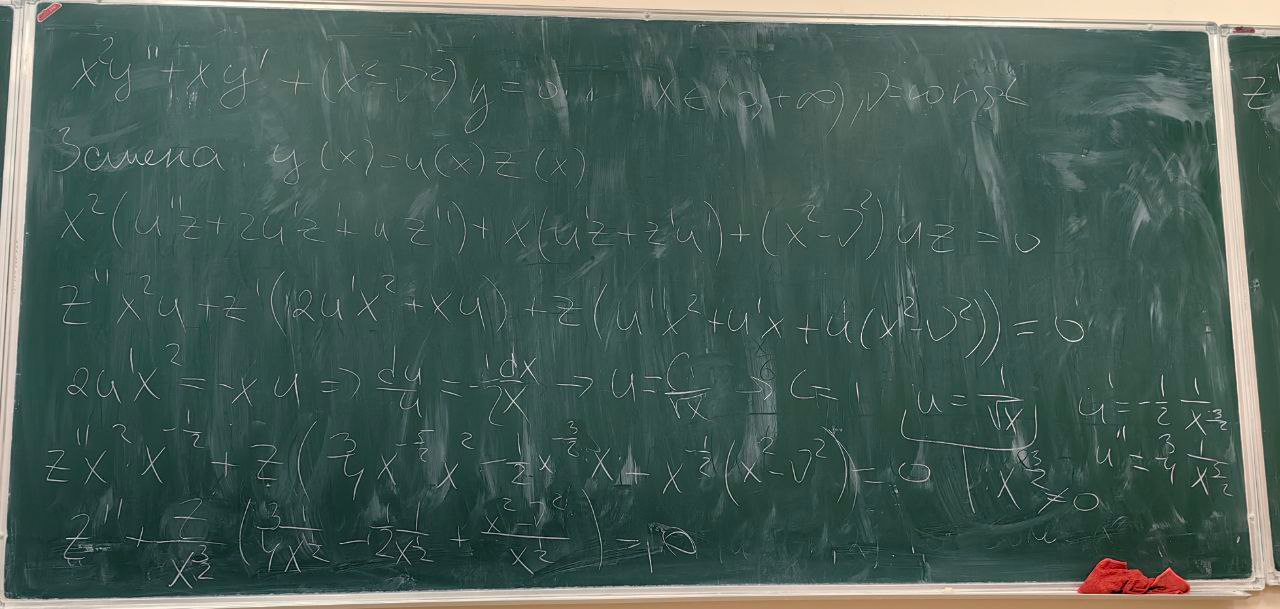 x²y'' + xy' + (x² - ν²)y = 0, x ∈ (0, +∞), ν = const
Замена. y(x) = u(x)z(x)
x²(u''z + 2u'z' + uz'') + x(u'z + z'u) + (x² - ν²)uz = 0
z''x²u + z'(2u'x² + xu) + z(u''x² + u'x + u(x² - ν²)) = 0
2u'x² = -xu => du/u = -1dx/2x → u = C/√x → C = 1 u = 1/√x u' = -1/2 1/x^(3/2)
z''x²·x^(-1/2) + z(3/4 x^(-5/2)x² - 1/2 x^(-3/2)·x + x^(-1/2)(x² - ν²)) = 0 | · x^(3/2) ≠ 0 u'' = 3/4 1/x^(5/2)
z'' + z/x^(3/2) (3/4x² - 1/2x² + (x² - ν²)/x²) = 0
z